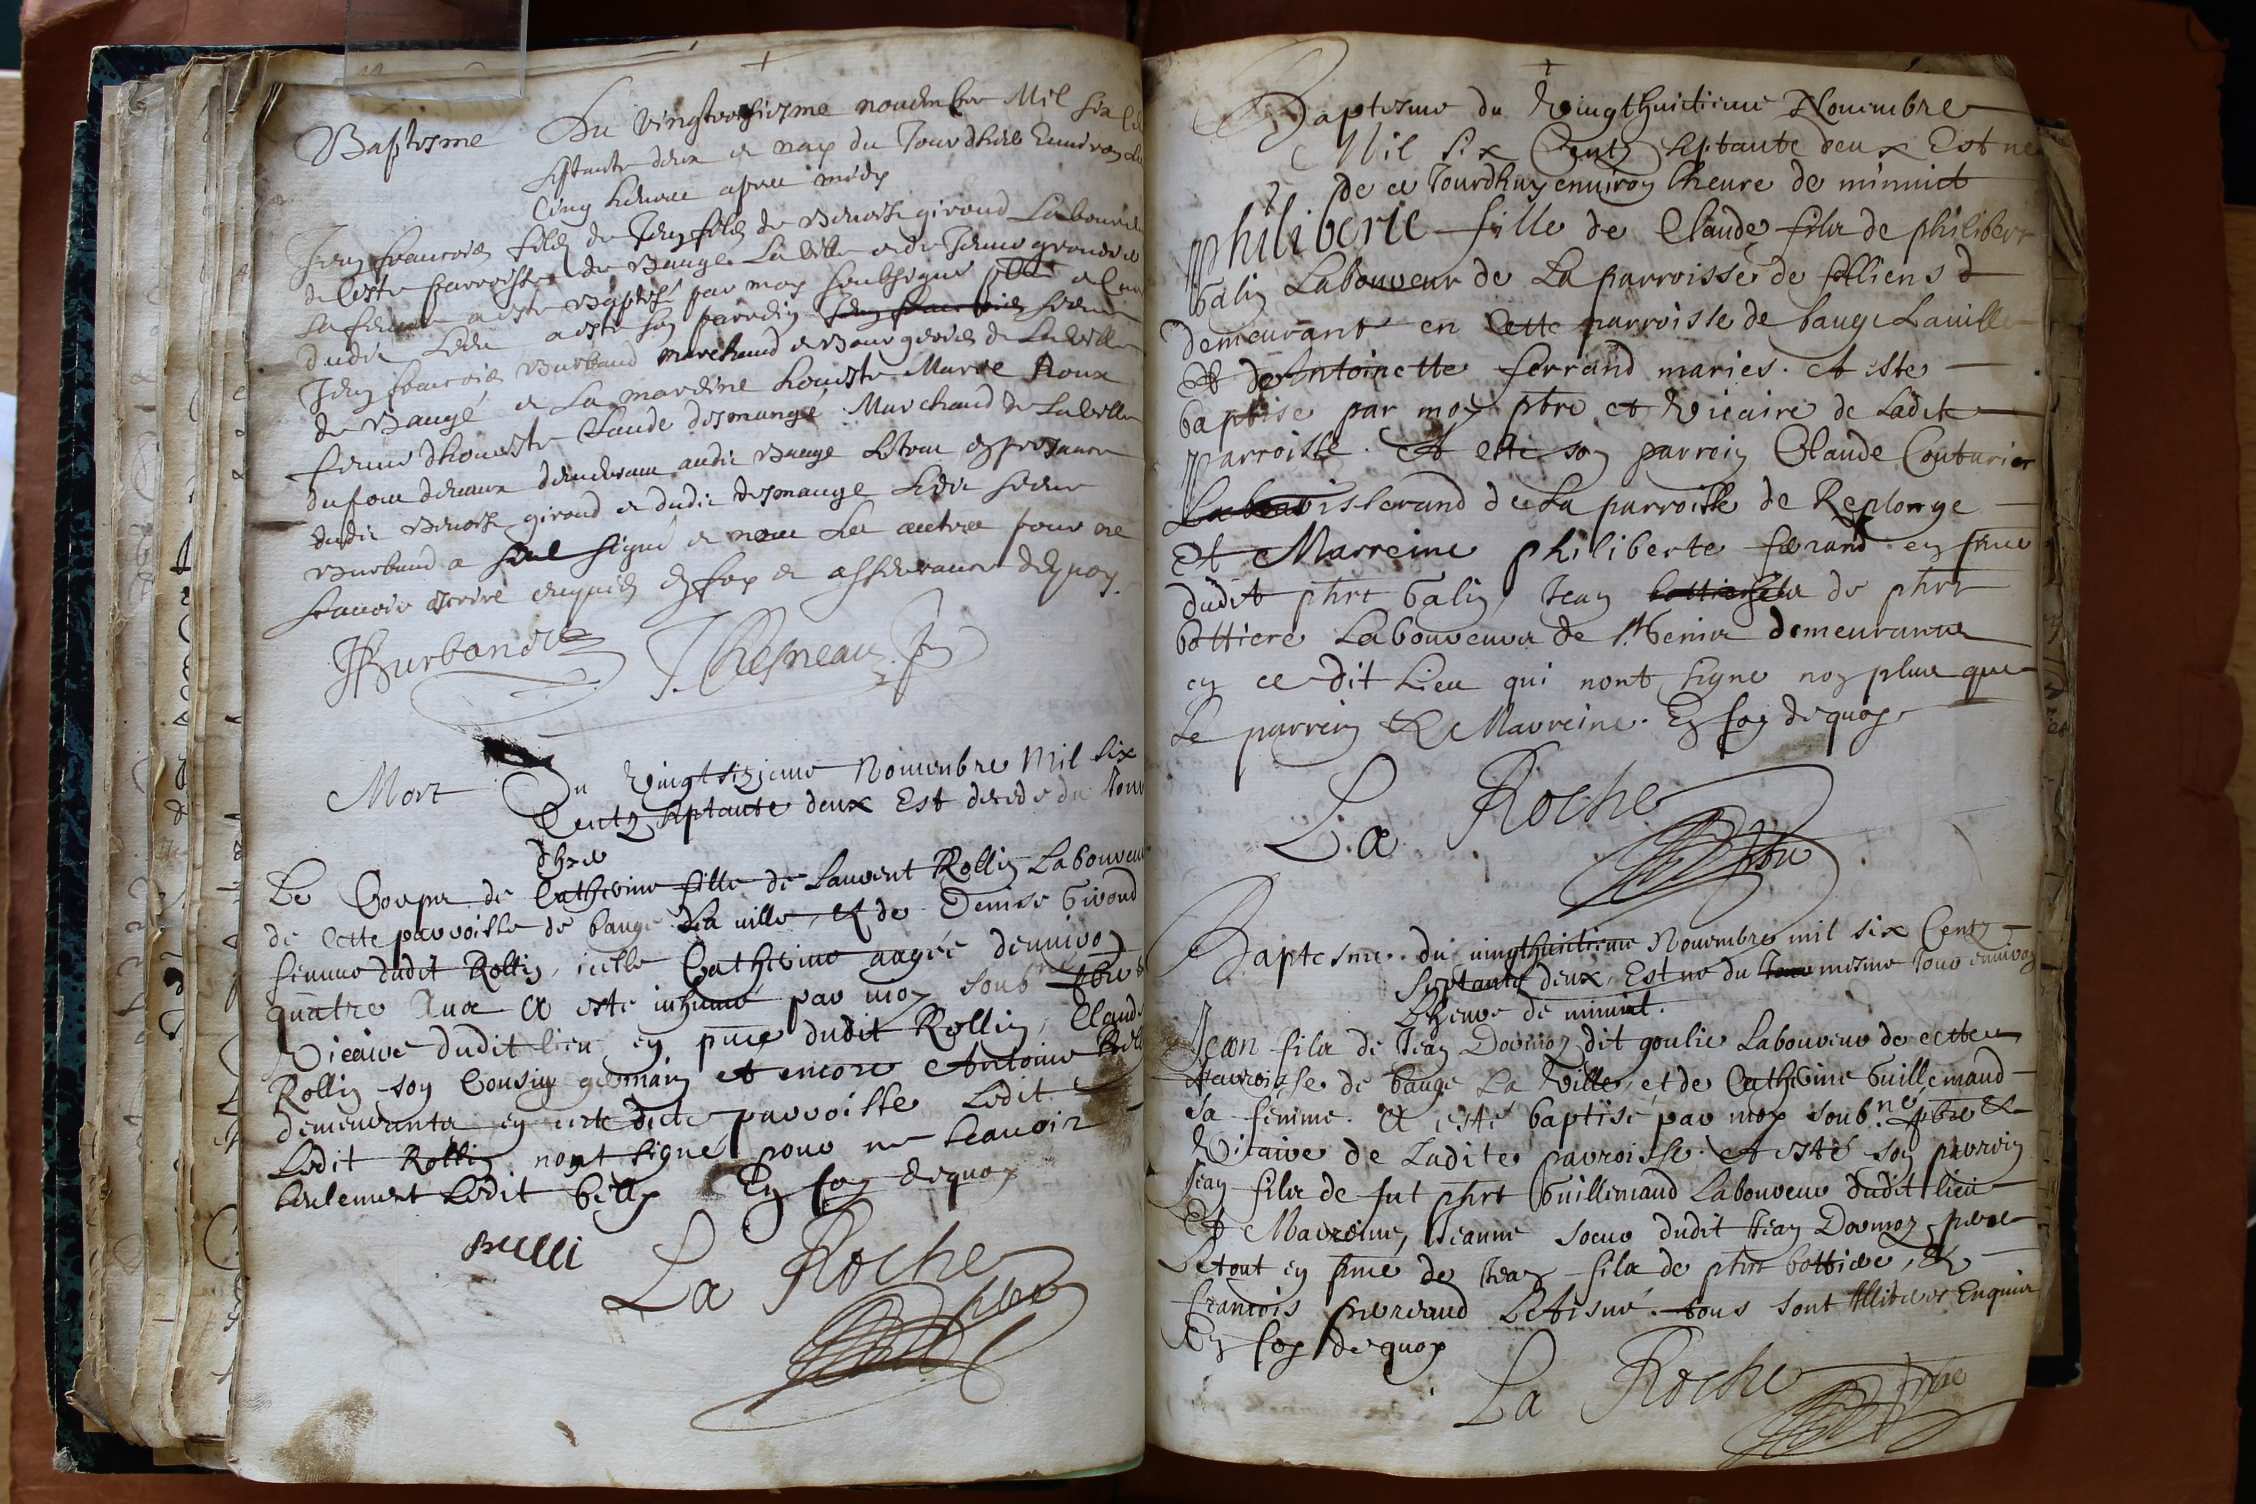 Baptesme Du vingttroisiesme nouembre Mil six Cen
septante deux et nay du Jourdhier Enuiron les
Cinq heures apres midy
Jean francois filz de Jean filz de Benoist giroud Laboureur
de Ceste parroisse de Baugé La ville et de Jeanne
sa femme a este Baptisé par moy soubsigné pbre et Curé
dudit Lieu a este son parrein sieur
Jean francois Burband marchand et Bourgeois de La ville
de Baugé et La mareine honneste Marie Roux
femme dhoneste Claude desmangé Marchand de La ville
demeurant audit Baugé Le tout en presance
dudit Benoist giroud et dudit desmangé Ledit sieur
Burband a seul signé et non Les autres pour ne
scauoir escrire enquis en foy et asseurance dequoy.
JF Burband J. Chesneau
Mort Du vingtsizieme Nouembre Mil six
Centz septante deux Est decede du Jour
dhier
Le Corps de Catherine fille de Laurent Rollin Laboureur
de Cette parroisse de baugé La ville, et de Denise Giroud
femme dudit Rollin, icelle Catherine aagée denuiron
quattre Ans A esté inhumé par moy soubne pbre &
Vicaire dudit lieu en pnce dudit Rollin, Claude
Rollin son Cousin germain et encore Antoine
demeurants en cete dicte parroisse Ledit
Ledit Rollin nont signé pour ne scauoir
seulement Ledit billy En foy dequoy
Billi La Roche pbre
Baptesme du Vingthuictieme Nouembre
Mil six Centz septante deux Est ne
de ce Jourdhuy enuiron Lheure de minuict
Philiberte fille de Claude filz de philibert
Galin Laboureur de La parroisse de st
demeurant en Cette parroisse de baugé Lauille
Et de Antoinette ferrand mariés. A esté
baptisé par moy pbre et Vicaire de Ladite
Parroisse. A esté son parrein Claude Couturier
tisserand de La parroisse de Replonge
Et Marreine philiberte ferrand en pnce
dudit phrt Galin, Jean de phrt
bottiere Laboureurs de St Genis demeurants
en ce dit Lieu qui nont signe non plus que
Le parrein & Marreine. En foy dequoy
La Roche pbre
Baptesme du vingthuictieme Nouembre mil six Centz
septante deux, Est né du mesme Jour enuiron
Lheure de minuit.
Jean filz de Jean Dormoz dit goulie Laboureur de cette
Parroisse de baugé La Ville, et de Catherine Guillemaud
sa femme. A esté baptisé par moy soub.né pbre &
Vicaire de Ladite parroisse. A esté son parrein
Jean filz de fut phrt Guillemaud Laboureur dudit lieu
Et Marreine, Jeanne soeur dudit Jean Dormoz pere
Le tout en pnce de Jean filz de phrt bottiere, &
francois Letisné. tous sont Illiteres Enquis
En foy dequoy
La Roche pbre